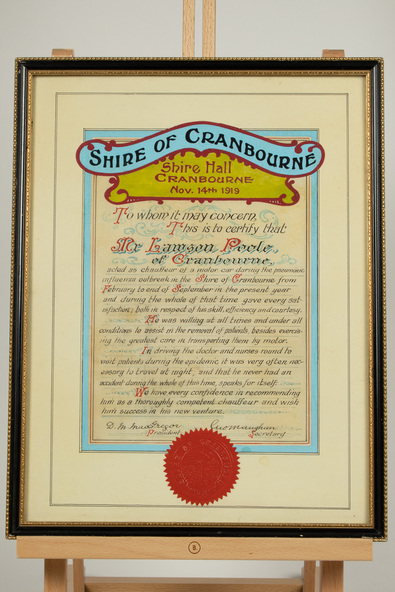 SHIRE OF CRANBOURNE
Shire Hall
CRANBOURNE
Nov. 14th 1919
To whom it may concern,
This is to certify that
Mr Lawson Poole,
of Cranbourne,
acted as chauffeur of a motor car during the pneumonic
influenza outbreak in the Shire of Cranbourne from
February to end of September in the present year
and during the whole of that time gave every sat-
isfaction; both in respect of his skill, efficiency and courtesy.
He was willing at all times and under all
conditions to assist in the removal of patients, besides exercis-
ing the greatest care in transporting them by motor.
In driving the doctor and nurses round to
visit patients during the epidemic it was very often nec-
essary to travel at night, and that he never had an
accident during the whole of this time, speaks for itself.
We have every confidence in recommending
him as a thoroughly competent chauffeur and wish
him success in his new venture.
D. M MacGregor
President
Secretary
8.